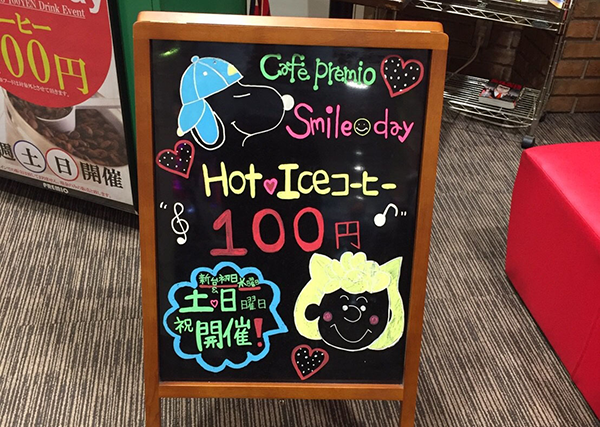 Café premio
Smile day
Hot Iceコーヒー
100円
新台初日&水曜日
土・日曜日
祝開催!
100YEN Drink Event
ーヒー
00円
週土日開催
PREMIO